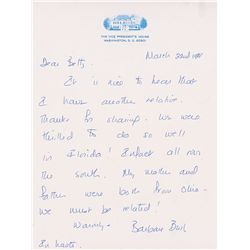 THE VICE PRESIDENT'S HOUSE
WASHINGTON, D.C. 20501
March 22nd
Dear Betty,
It is nice to hear that
I have another relative.
Thanks for sharing. We were
thrilled to do so well
in Florida! Infact all over
the south. My mother and
father were both from Ohio -
we must be related!
Warmly -
Barbara Bush
In haste.